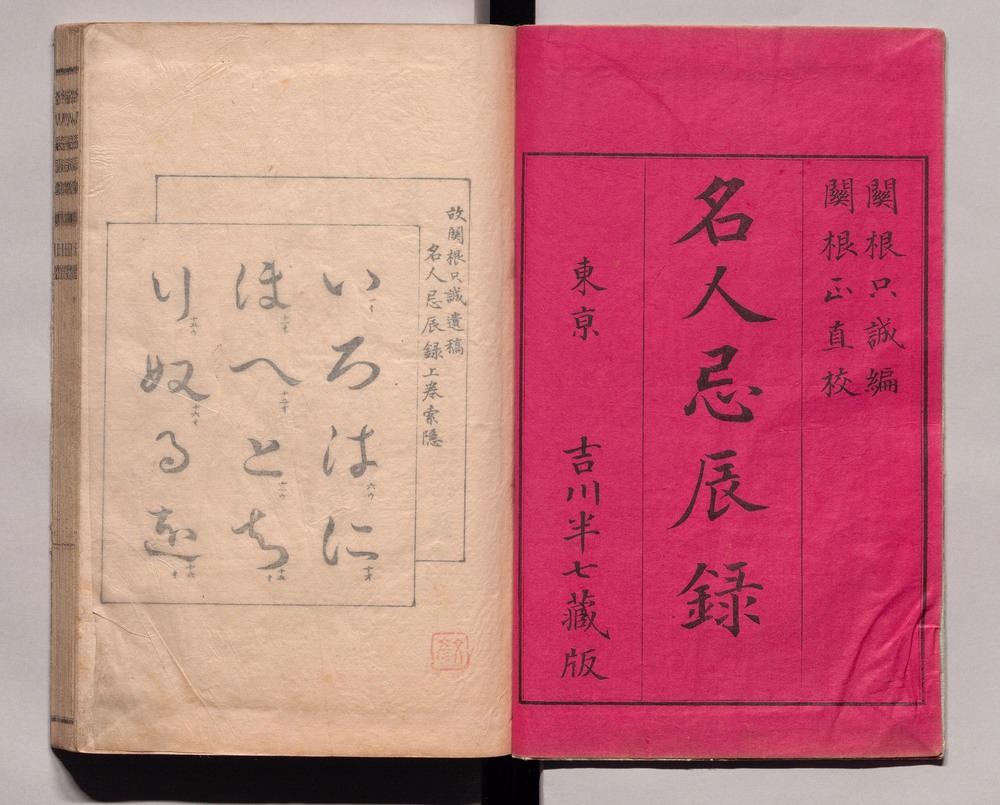 關根只誠編
關根正直校
名人忌辰録
東京　吉川半七藏版
故関根只誠遺稿
名人忌辰録上巻索隠
い　ろ　は　に
ほ　へ　と　ち
り　ぬ　る　を